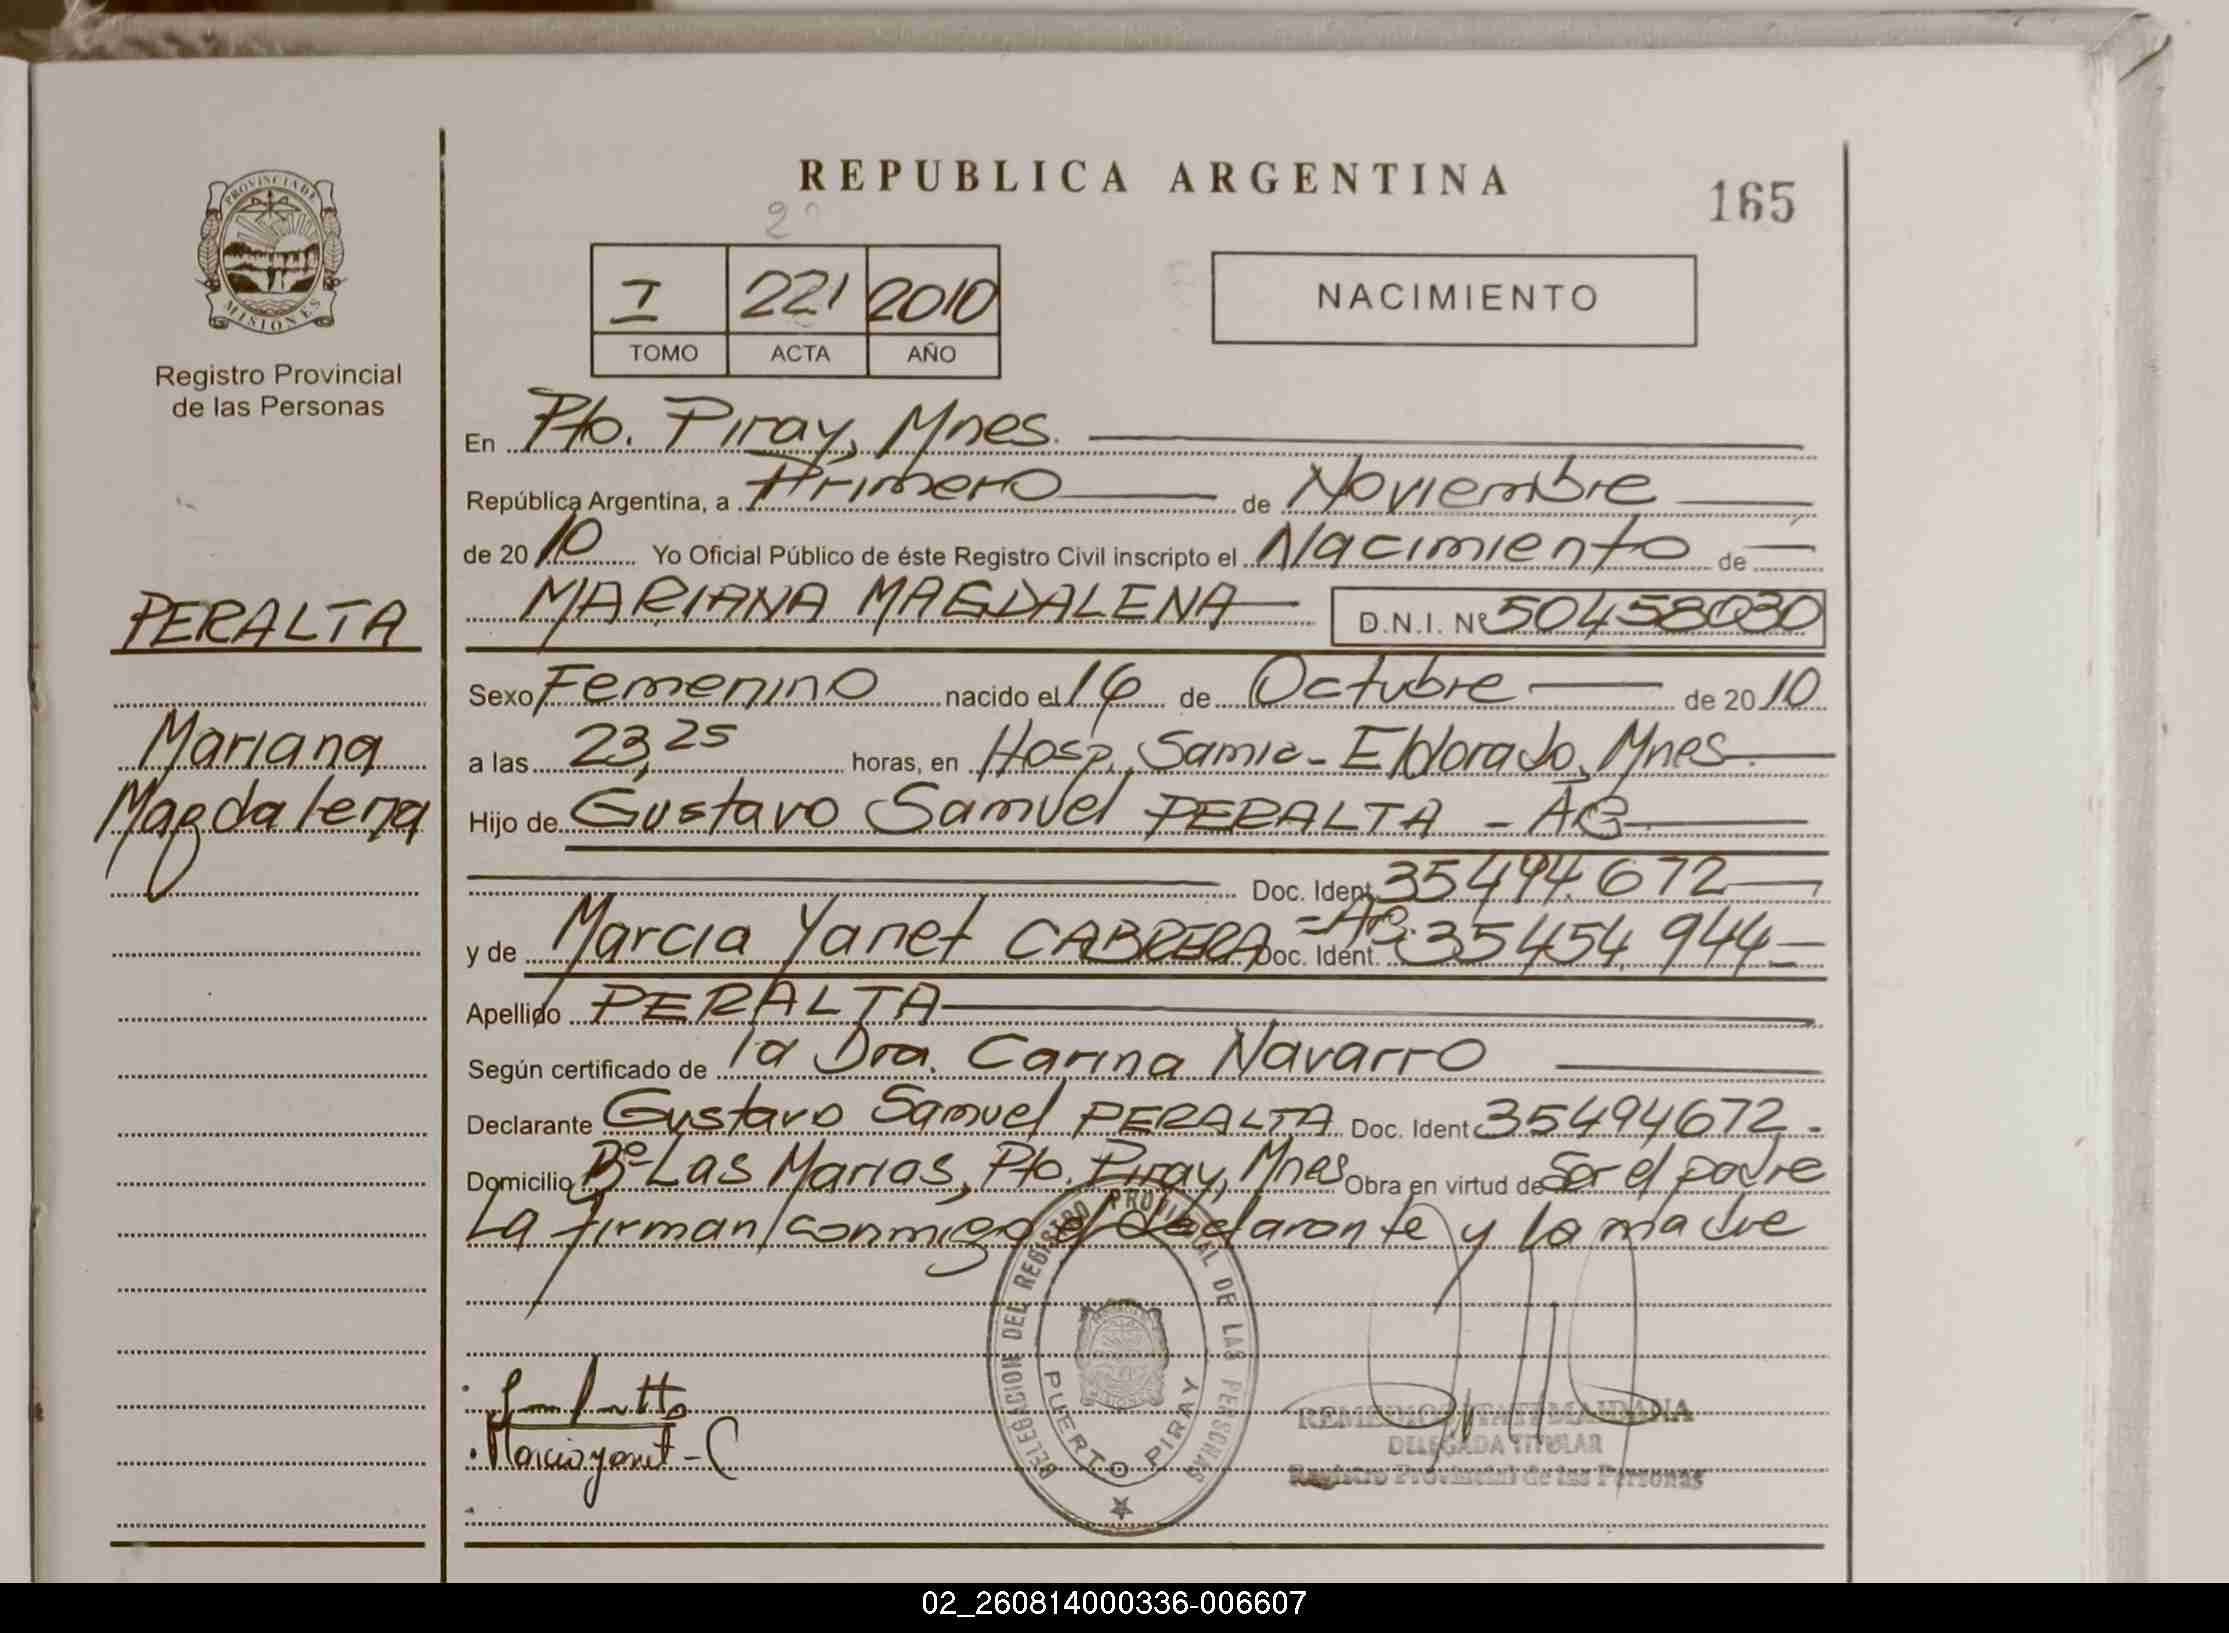 REPUBLICA ARGENTINA
165
PROVINCIA DE
MISIONES
Registro Provincial
de las Personas
I 221 2010
TOMO ACTA AÑO
NACIMIENTO
En Pto. Piray, Mnes.
República Argentina, a Primero de Noviembre
de 20 10 Yo Oficial Público de éste Registro Civil inscripto el Nacimiento de
MARIANA MAGDALENA D.N.I. Nº 50458030
PERALTA
Mariana
Magdalena
Sexo Femenino nacido el 16 de Octubre de 20 10
a las 23,25 horas, en Hosp. Samic - Eldorado, Mnes
Hijo de Gustavo Samuel PERALTA - AG
Doc. Ident. 35494.672
y de Marcia Yanet CABRERA - AG. Doc. Ident. 35454.944
Apellido PERALTA
Según certificado de la Dra. Carina Navarro
Declarante Gustavo Samuel PERALTA Doc. Ident 35494672.
Domicilio Bº Las Marias, Pto. Piray, Mnes Obra en virtud de Ser el padre
La firman conmigo el declarante y la madre
DELEGACION DEL REGISTRO PROVINCIAL DE LAS PERSONAS
PUERTO PIRAY
Marcia yanet - C
DELEGADA TITULAR
Registro Provincial de las Personas
02_260814000336-006607